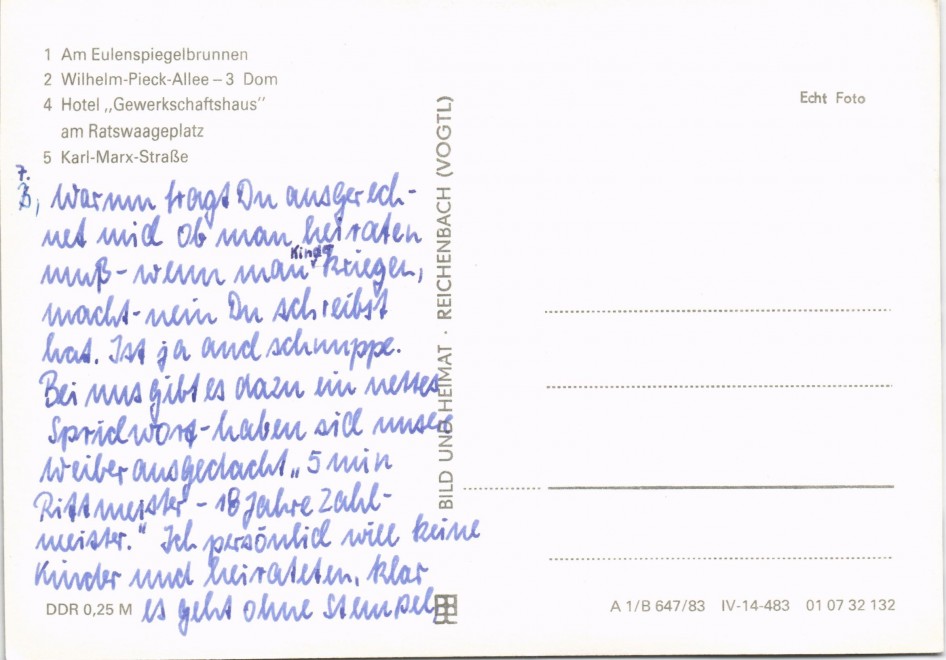 1 Am Eulenspiegelbrunnen
2 Wilhelm-Pieck-Allee – 3 Dom
4 Hotel „Gewerkschaftshaus"
am Ratswaageplatz
5 Karl-Marx-Straße
Echt Foto
BILD UND HEIMAT · REICHENBACH (VOGTL)
7.
Warum fragt Du ausgerech-
net mich ob man heiraten
muß - wenn man Kinder kriegen,
macht - nein Du schreibst
hat. Ist ja auch schnuppe.
Bei uns gibt es dazu ein nettes
Sprichwort - haben sich unsere
Weiber ausgedacht „5 min
Rittmeister - 18 Jahre Zahl-
meister." Ich persönlich will keine
Kinder und heirateten, klar
es geht ohne Stempel
DDR 0,25 M
A 1/B 647/83 IV-14-483 01 07 32 132